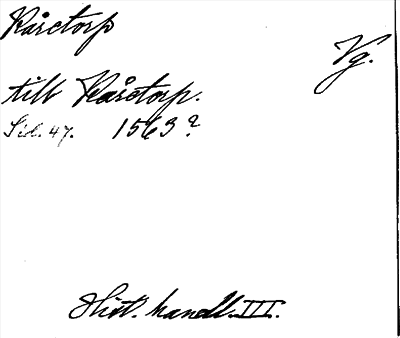 Kårtorp
Vg.
till Kårtorp.
Sid. 47. 1563?
Hist. handl. III.